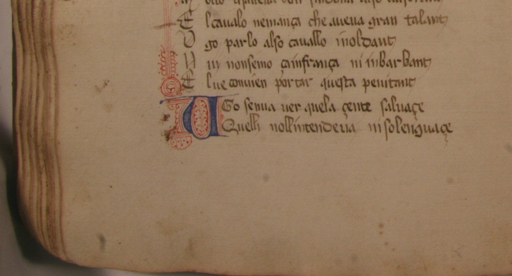 E l cavallo nemança che aveva gran talant
U go parlo also cavallo inoldant
N un nonsemo çainfrança ni inbarbant
E l ve conven portar questa penitant
U Go senva ver quela çente salvaçe
Quelli nollintendeva ni so lenguaçe